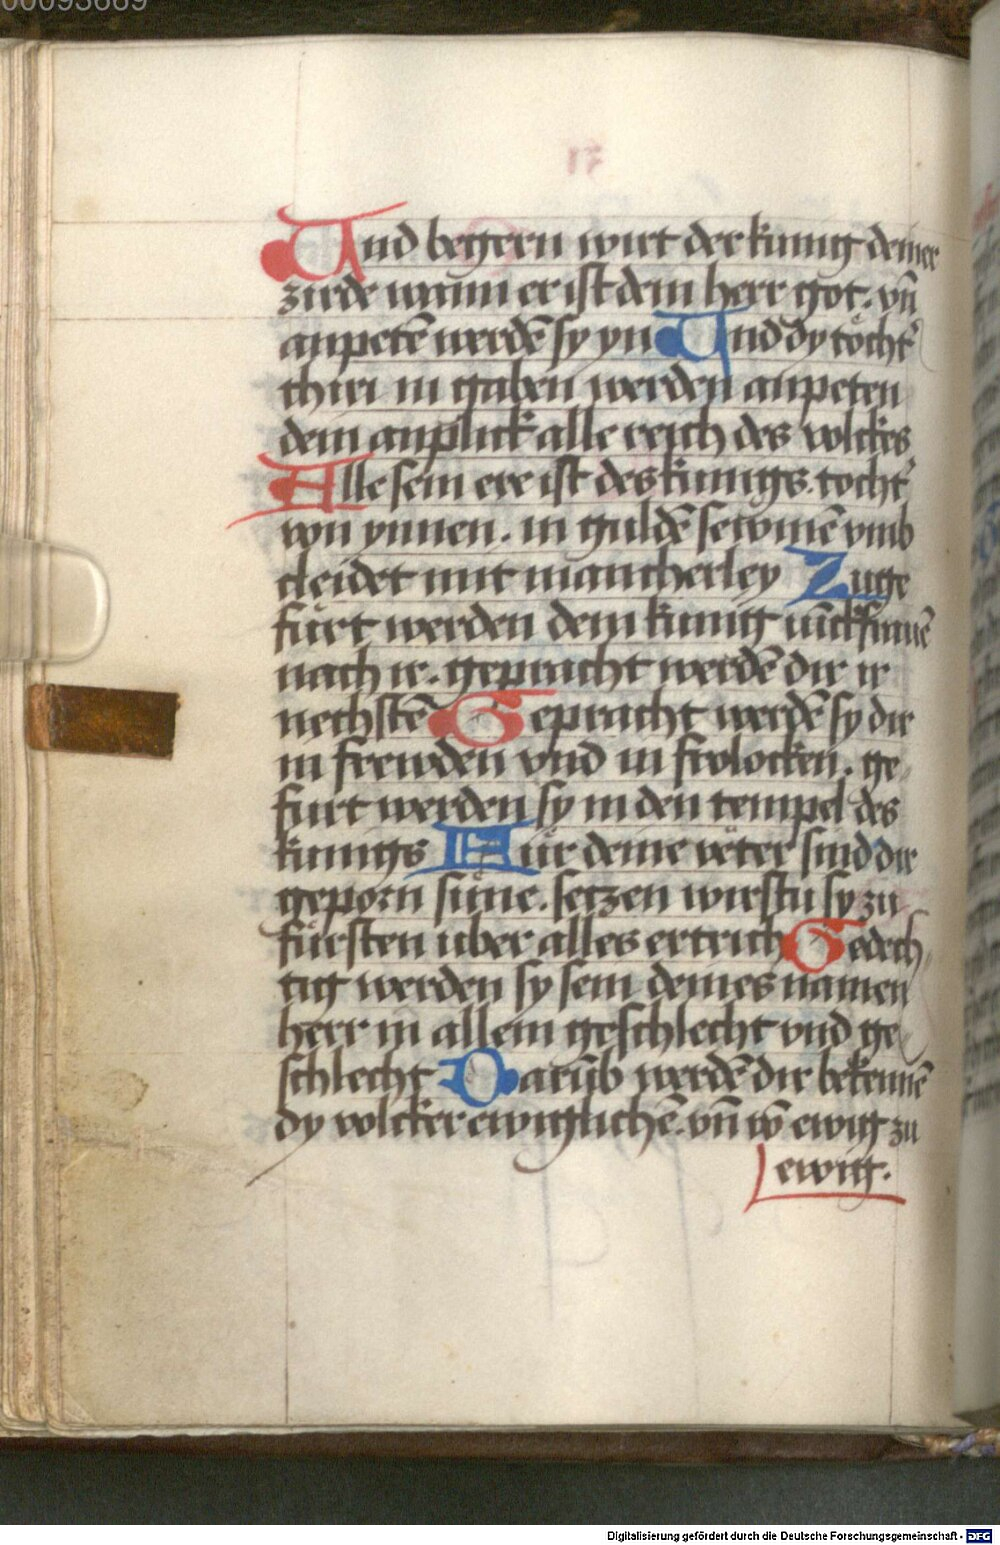 00093669
Und begern wirt der kunig deiner
zirde wann er ist dein herr got. vn̄
anpetē werdē sy yn Und dy töcht̾
thiri in gaben werden anpeten
dein anplick alle reich des volckes
Alle sein ere ist des kunigs tocht̾
von ynnen. in guldē sewmē vmb
cleidet mit mancherley Zuge
fürt werden dem kunig iūckfrauē
nach ir. gepracht werdē dir ir
nechstē Gepracht werdē sy dir
in frewden vnd in frolocken. ge
furt werden sy in den tempel des
kunigs Für deine veter sind dir
geporn süne. setzen wirstu sy zu
fürsten uber alles ertrich Gedech
tig werden sy sein deines namen
herr in allem geschlecht vnd ge
schlecht Darüb werdē dir bekennē
dy volcker ewiglichē. vn̄ in ewig zu
ewig.
Digitalisierung gefördert durch die Deutsche Forschungsgemeinschaft - DFG